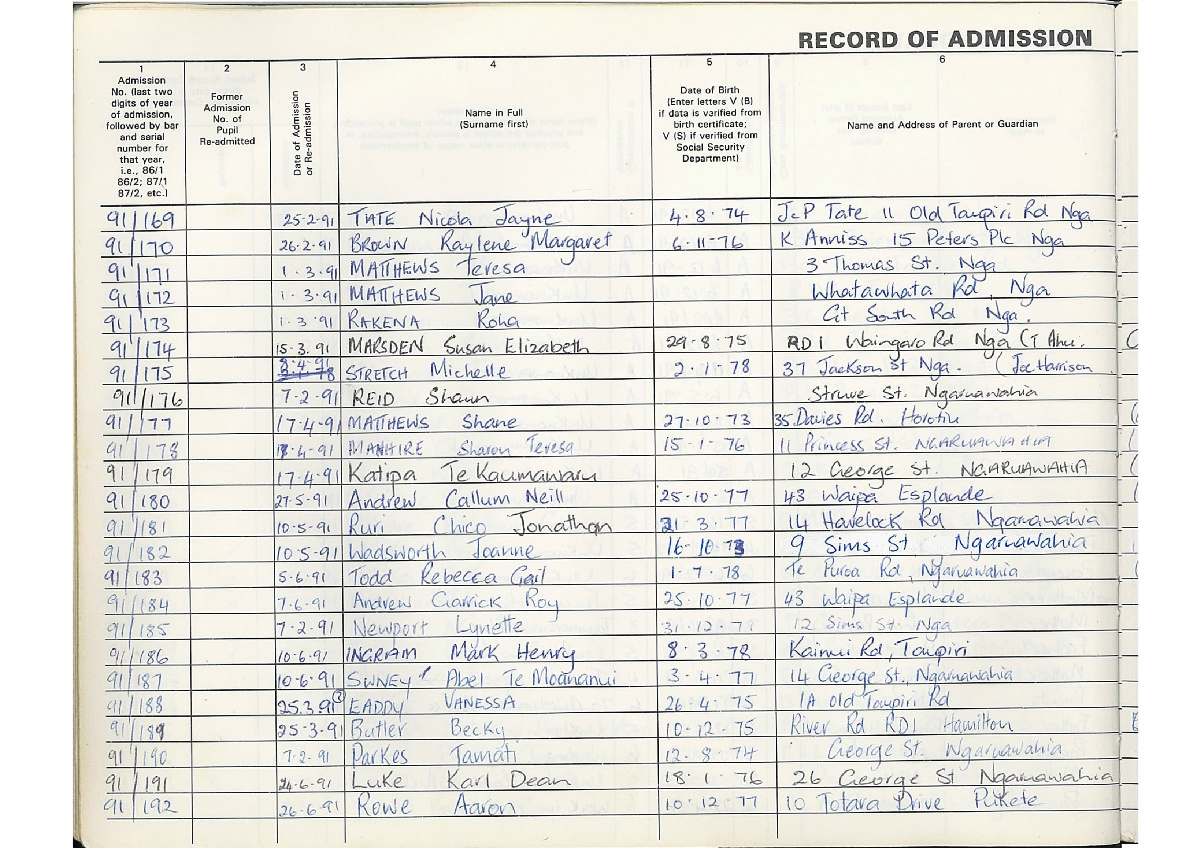 RECORD OF ADMISSION
1 2 3 4 5 6
Admission No. (last two digits of year of admission, followed by bar and serial number for that year, i.e., 86/1 86/2; 87/1 87/2, etc.)
Former Admission No. of Pupil Re-admitted
Date of Admission or Re-admission
Name in Full (Surname first)
Date of Birth (Enter letters V (B) if data is verified from birth certificate; V (S) if verified from Social Security Department)
Name and Address of Parent or Guardian
91/169 25-2-91 TATE Nicola Jayne 4.8.74 J & P Tate 11 Old Taupiri Rd Nga
91/170 26-2-91 BROWN Raylene Margaret 6-11-76 K Anniss 15 Peters Plc Nga
91/171 1.3.91 MATTHEWS Teresa 3 Thomas St. Nga
91/172 1.3.91 MATTHEWS Jane Whatawhata Rd, Nga
91/173 1.3.91 RAKENA Roha Gt South Rd Nga.
91/174 15.3.91 MARSDEN Susan Elizabeth 29-8-75 RD1 Waingaro Rd Nga (T Ahu.
91/175 8.4.91 STRETCH Michelle 2.1.78 37 Jackson St Nga. (Joe Harrison
91/176 7-2-91 REID Shaun Struve St. Ngaruawahia
91/177 17-4-91 MATTHEWS Shane 27-10-73 35 Davies Rd. Horotiu
91/178 -4-91 MANHIRE Sharon Teresa 15-1-76 11 Princess St. NGARUAWAHIA
91/179 17-4-91 Katipa Te Kaumawaru 12 George St. NGARUAWAHIA
91/180 27-5-91 Andrew Callum Neill 25-10-77 43 Waipa Esplande
91/181 10-5-91 Ruri Chico Jonathon 21-3-77 14 Havelock Rd Ngaruawahia
91/182 10-5-91 Wadsworth Joanne 16-10- 9 Sims St Ngaruawahia
91/183 5-6-91 Todd Rebecca Gail 1-7-78 Te Puroa Rd, Ngaruawahia
91/184 7-6-91 Andrew Garrick Roy 25-10-77 43 Waipa Esplande
91/185 7-2-91 Newport Lynette 31-12-77 12 Sims St. Nga
91/186 10-6-91 INGRAM Mark Henry 8-3-78 Kainui Rd, Taupiri
91/187 10-6-91 SWNEY Abel Te Moananui 3-4-77 14 George St., Ngaruawahia
91/188 25.3.91 EADDY VANESSA 26-4-75 1A Old Taupiri Rd
91/189 25-3-91 Butler Becky 10-12-75 River Rd RD1 Hamilton
91/190 7-2-91 Parkes Tamati 12-8-74 George St. Ngaruawahia
91/191 24-6-91 Luke Karl Dean 18-1-76 26 George St Ngaruawahia
91/192 26-6-91 Rowe Aaron 10-12-77 10 Totara Drive Pukete